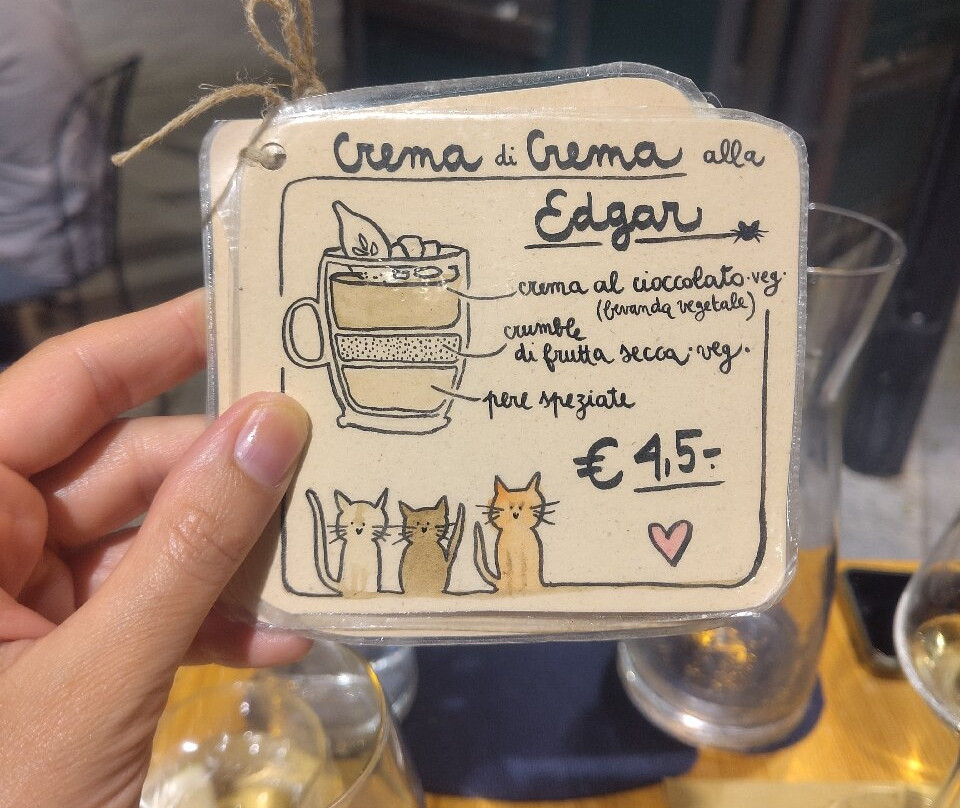 Crema di Crema alla
Edgar
crema al cioccolato·veg·
(bevanda vegetale)
crumble
di frutta secca·veg·
pere speziate
€ 4,5-